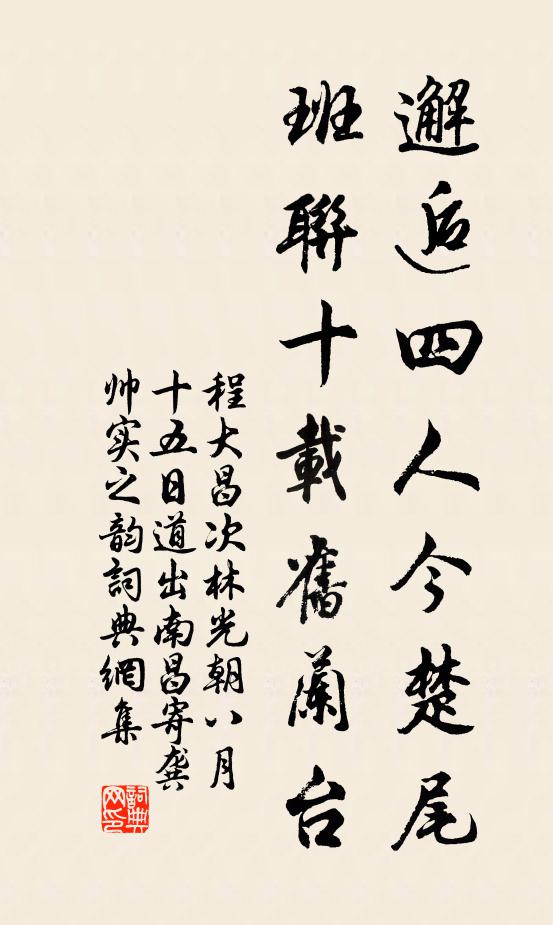 邂逅四人今楚尾
班聯十載舊蘭台
程大昌次林光朝八月
十五日道出南昌寄龔
帅实之韵詞典網集
詞典
网